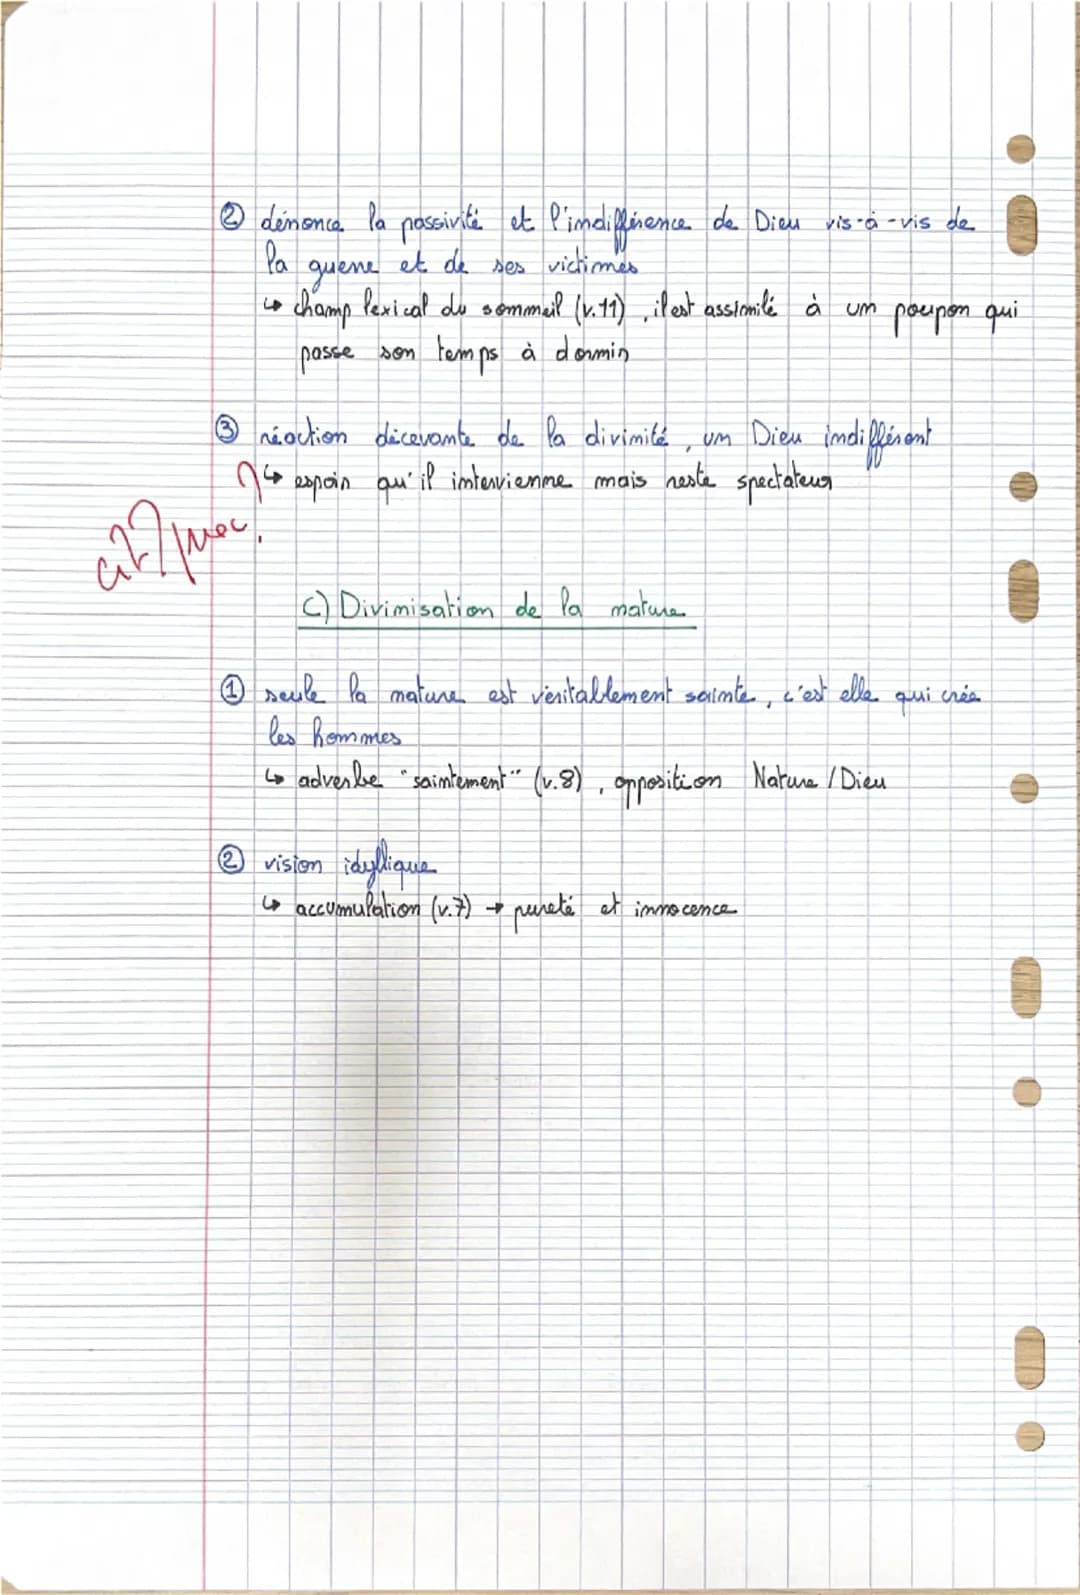 ② dénonce la passivité et l'indifférence de Dieu vis-à-vis de
la guerre et de ses victimes
↳ champ lexical du sommeil (v.11), il est assimilé à un poupon qui
passe son temps à dormir
③ réaction décevante de la divinité, un Dieu indifférent
↳ espoir qu'il intervienne mais reste spectateur
cit? préc.
C) Divinisation de la nature
① seule la nature est véritablement sainte, c'est elle qui crée
les hommes
↳ adverbe "saintement" (v.8), opposition Nature / Dieu
② vision idyllique
↳ accumulation (v.7) → pureté et innocence